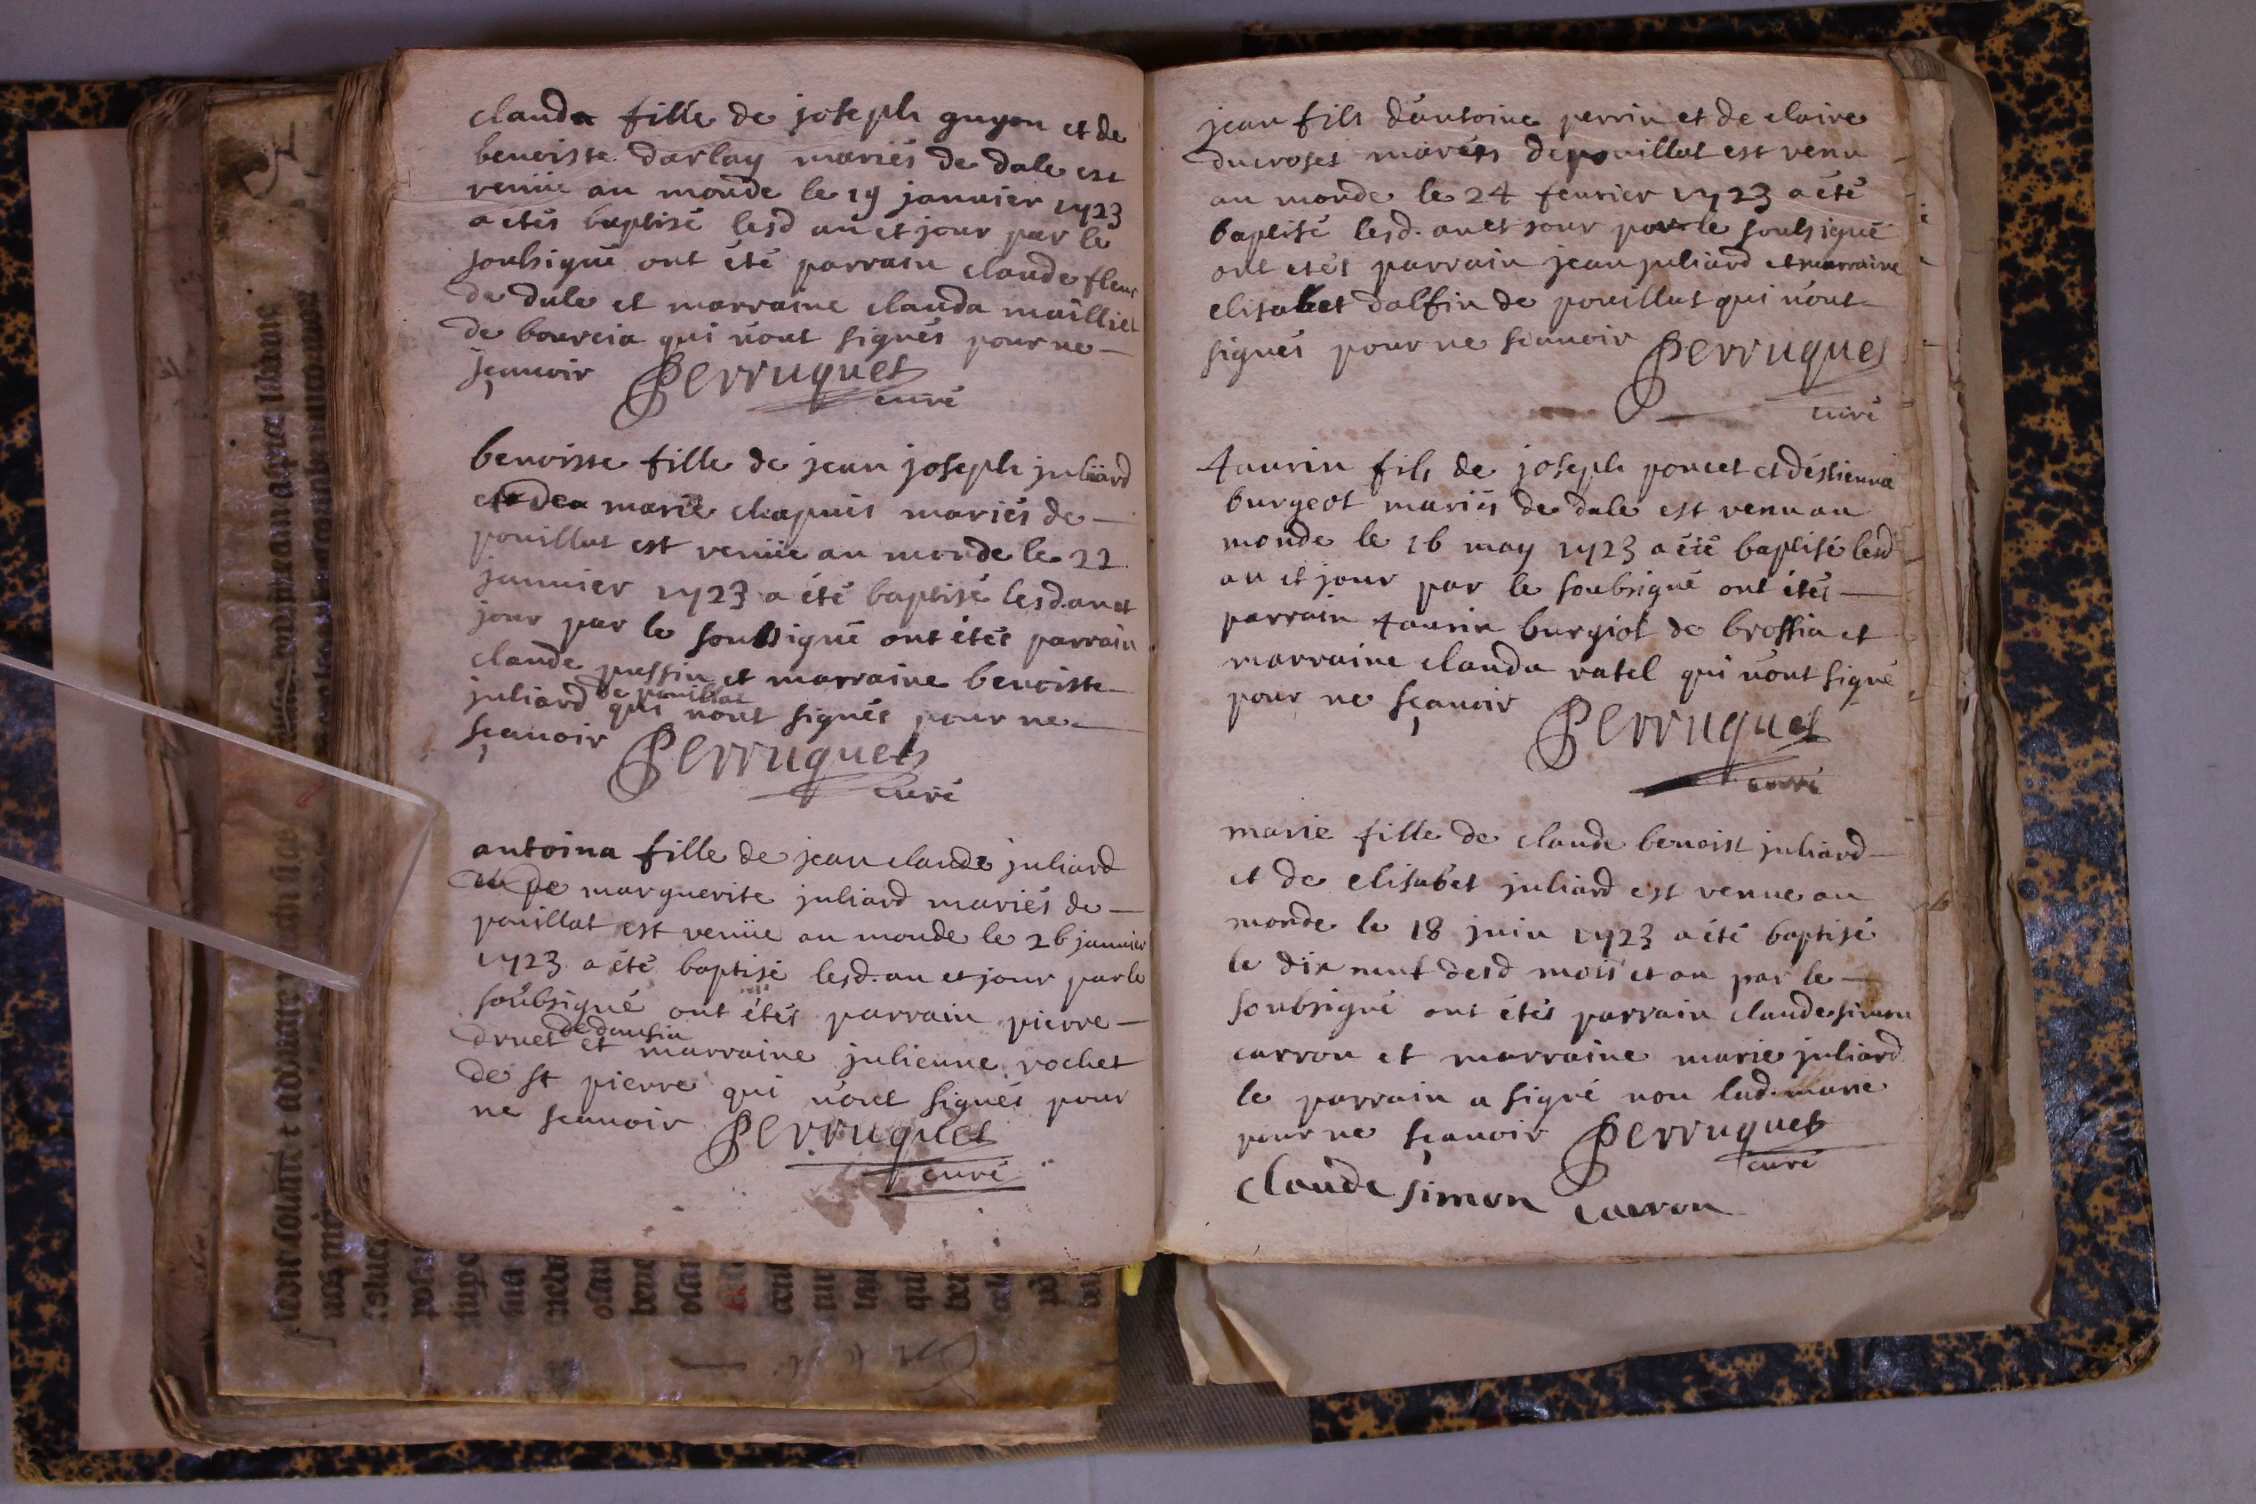 clauda fille de joseph guyon et de
benoiste darlay mariés de dale est
venüe au monde le 19 janvier 1723
a etés baptisé lesd an et jour par le
soubsigné ont été parrain claude fleur
de dale et marraine clauda mailliet
de bourcia qui n'ont signés pour ne
sçauoir Perruquet
curé
benoiste fille de jean joseph juliard
et de marie chapuis mariés de
pouillat est venüe au monde le 22
januier 1723 a été baptisé lesd. an et
jour par le soubsigné ont étés parrain
claude pussin et marraine benoiste
de pouillat
juliard qui n'ont signés pour ne
sçauoir Perruquet
curé
antoina fille de jean claude juliard
et de marguerite juliard mariés de
pouillat est venüe au monde le 26 januier
1723 a été baptisé lesd. an et jour par le
soubsigné ont étés parrain pierre
de dansia
druet et marraine julienne rochet
de st pierre qui n'ont signés pour
ne sçauoir Perruquet
curé
jean fils d'antoine perrin et de claire
ducroset mariés de pouillat est venu
au monde le 24 feurier 1723 a été
baptisé lesd. an et jour par le soubsigné
ont etés parrain jean juliard et marraine
elisabet dalfin de pouillat qui n'ont
signés pour ne scauoir Perruquet
curé
taurin fils de joseph poncet et d'éstienna
burgeot mariés de dale est venu au
monde le 16 may 1723 a été baptisé lesd
an et jour par le soubsigné ont étés
parrain taurin burgiot de broissia et
marraine clauda ratel qui n'ont signé
pour ne sçauoir Perruquet
curé
marie fille de claude benoist juliard
et de elisabet juliard est venue au
monde le 18 juin 1723 a été baptisé
le dix neuf desd mois et an par le
soubsigné ont étés parrain claude simon
carron et marraine marie juliard
le parrain a signé non lad. marie
pour ne sçauoir Perruquet
curé
claude simon carron